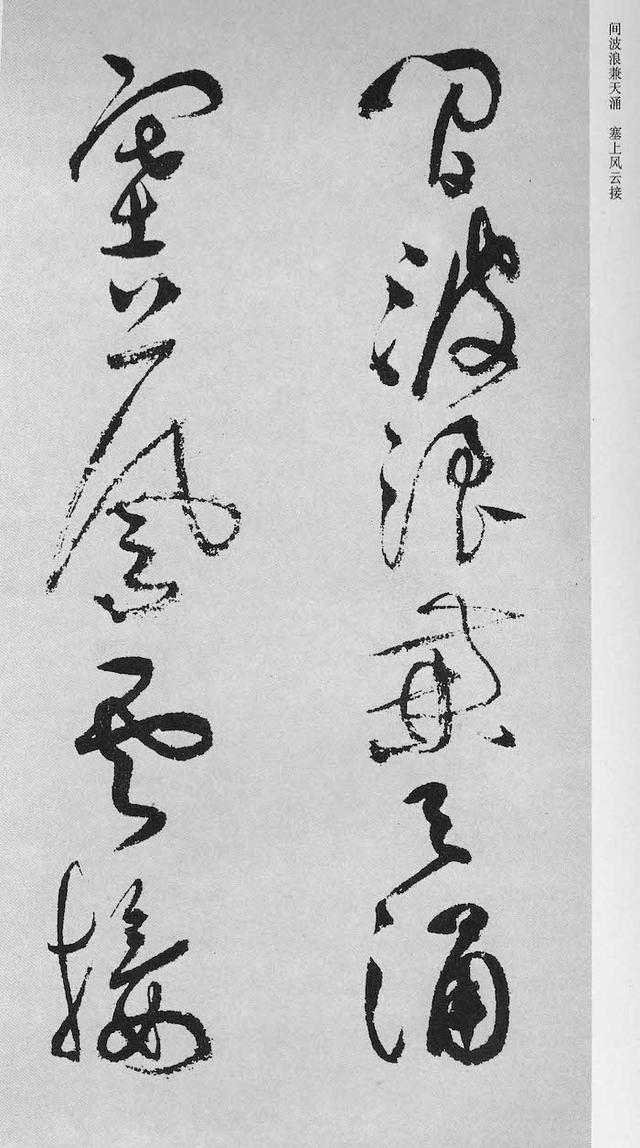 间波浪兼天涌　塞上风云接
间波浪兼天涌
塞上風雲接